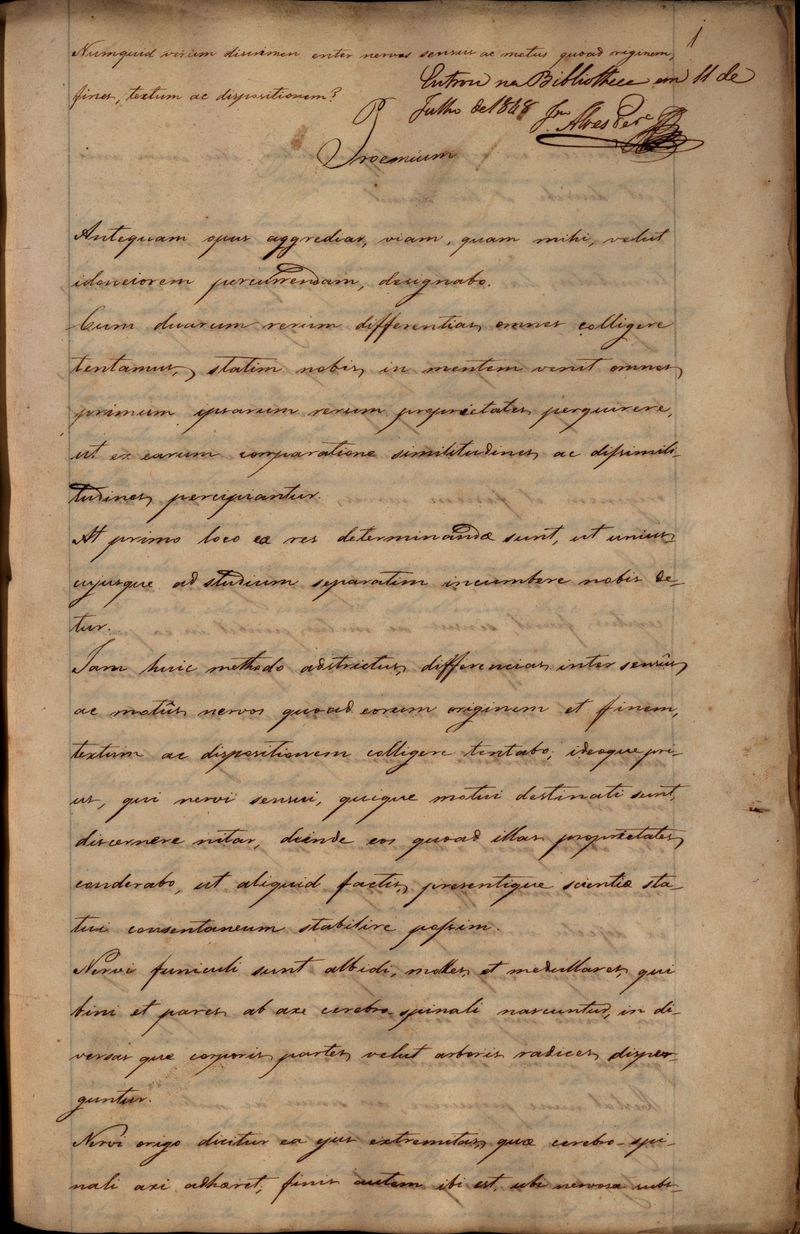 1
Numquid verum discrimen enter nervos sensus ac motus quoad originem,
fines, textum ac dispositionem?
Entrou na Bibliotheca em 11 de
Julho de 1848 Alves
Proemium
Antequam opus aggrediar, viam, quam mihi, velut
idoneiorem percurrendam, designabo.
Cum duarum rerum differentias omnes colligere
tentamus, statim nobis in mentem venit omnes
primum ipsarum rerum proprietates perquirere,
ut ex earum comparatione similitudines ac dissimili-
tudines percipiantur.
At primo loco eæ res determinandæ sunt, ut unius
cujusque ad studium separatim incumbere nobis de-
tur.
Jam huic methodo adstrictus, differencias inter sensûs
ac motûs nervos quoad eorum originem et finem,
textum ac dispositionem colligere tentabo; ideoque pri-
us, qui nervi sensui, quique motui destinati sunt,
discernere nitar, deinde eos quoad illas proprietates
conderabo, ut aliquid factis, presentique scientiæ sta-
tui consentaneum stabilire possim.
Nervi funiculi sunt albidi, molles et medullares, qui
bini et pares ab axe cerebro-spinali nascuntur, in di-
versas que corporis partes velut arboris radices disper-
guntur.
Nervi origo dicitur ea ejus extremitas, quæ cerebro-spi-
nali axi adhæret; finis autem ibi est, ubi nervosa subs-